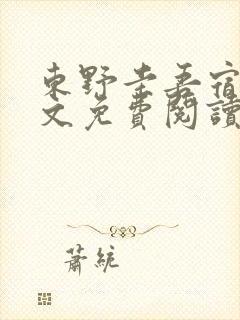 東野圭吾宿
文免費閱讀
蕭統